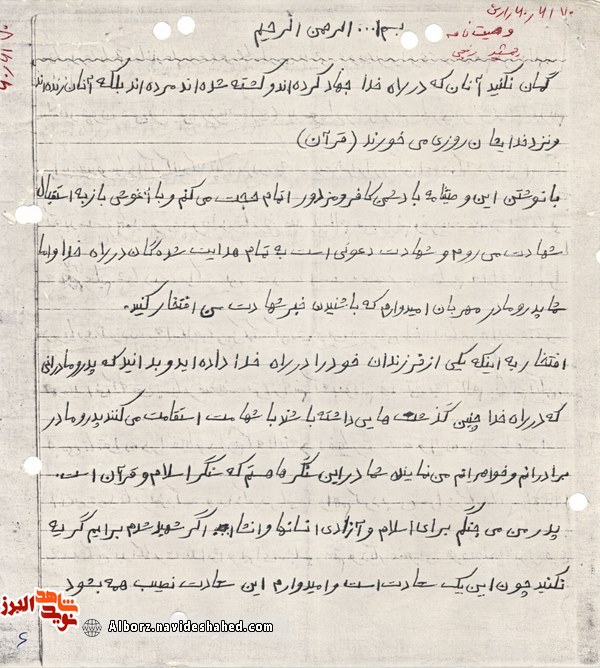 بسم ا... الرحمن الرحیم
وصیت نامه
گمان نکنید آنان که در راه خدا جهاد کرده‌اند و کشته شده‌اند مرده‌اند بلکه آنان زنده‌اند
و نزد خدایشان روزی می خورند (قرآن)
با نوشتن این وصیتنامه با دشمن کافر و مزدور اتمام حجت می کنم و با آغوشی باز به استقبال
شهادت می روم و شهادت دعوتی است به تمام هدایت شده گان در راه خدا و اما
شما پدر و مادر مهربان امیدوارم که با شنیدن خبر شهادت من افتخار کنید.
افتخار به اینکه یکی از فرزندان خود را در راه خدا داده اید و بدانید که پدر و مادرانی
که در راه خدا چنین گذشت هایی داشته باشند با شهامت استقامت می کنند پدر و مادر
برادرانم و خواهرانم من نماینده شما در این سنگرها هستم که سنگر اسلام و قرآن است.
پدر من می جنگم برای اسلام و آزادی انسانها و انشاء... اگر شهید شدم برایم گریه
نکنید چون این یک سعادت است و امیدوارم این سعادت نصیب همه بشود
نوید شاهد البرز
Alborz.navideshahed.com
۶